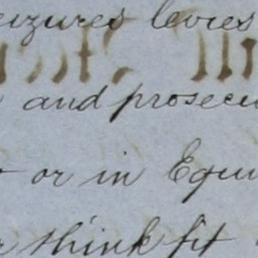 seizures levies
and prosecu
or in Equi
think fit